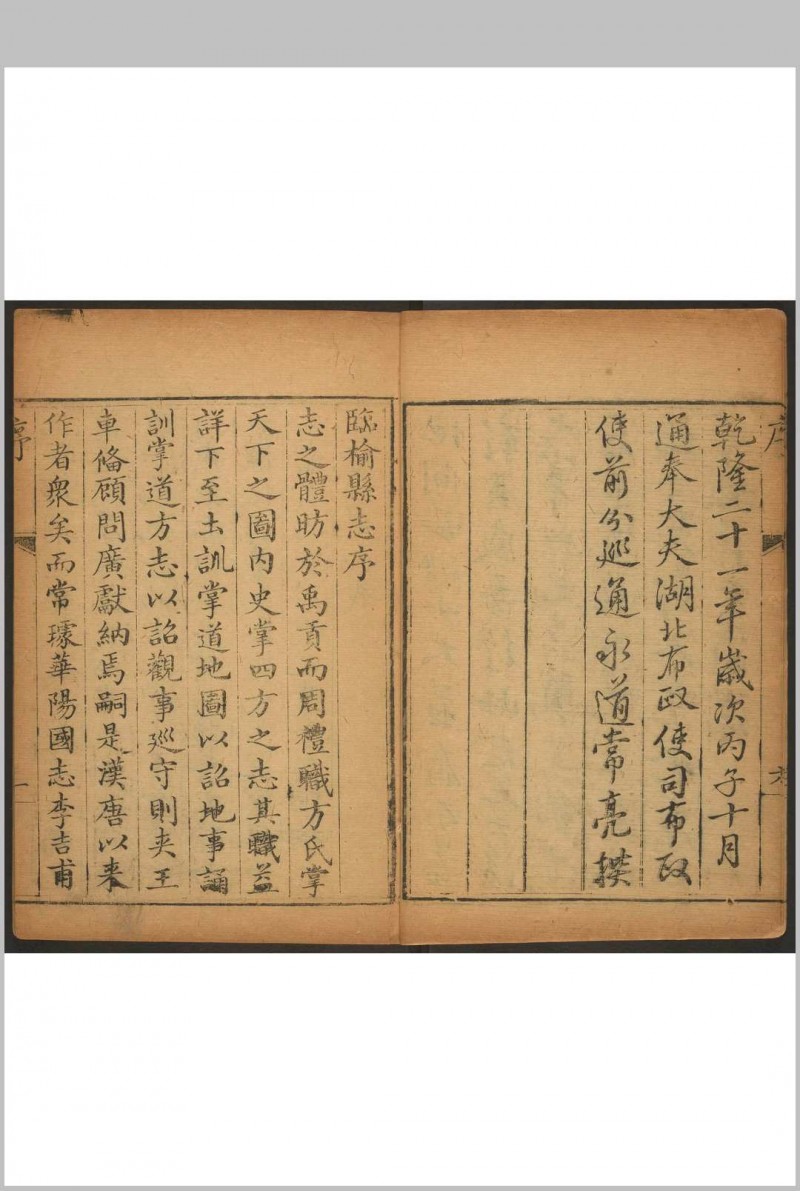 乾隆二十一年歲次丙子十月
通奉大夫湖北布政使司布政
使前分廵通永道常亮撰
臨榆縣志序
志之體昉於禹貢而周禮職方氏掌
天下之圖內史掌四方之志其職益
詳下至土訓掌道地圖以詔地事誦
訓掌道方志以詔觀事廵守則夾王
車俻顧問廣獻納焉嗣是漢唐以来
作者衆矣而常璩華陽國志李吉甫
序
一